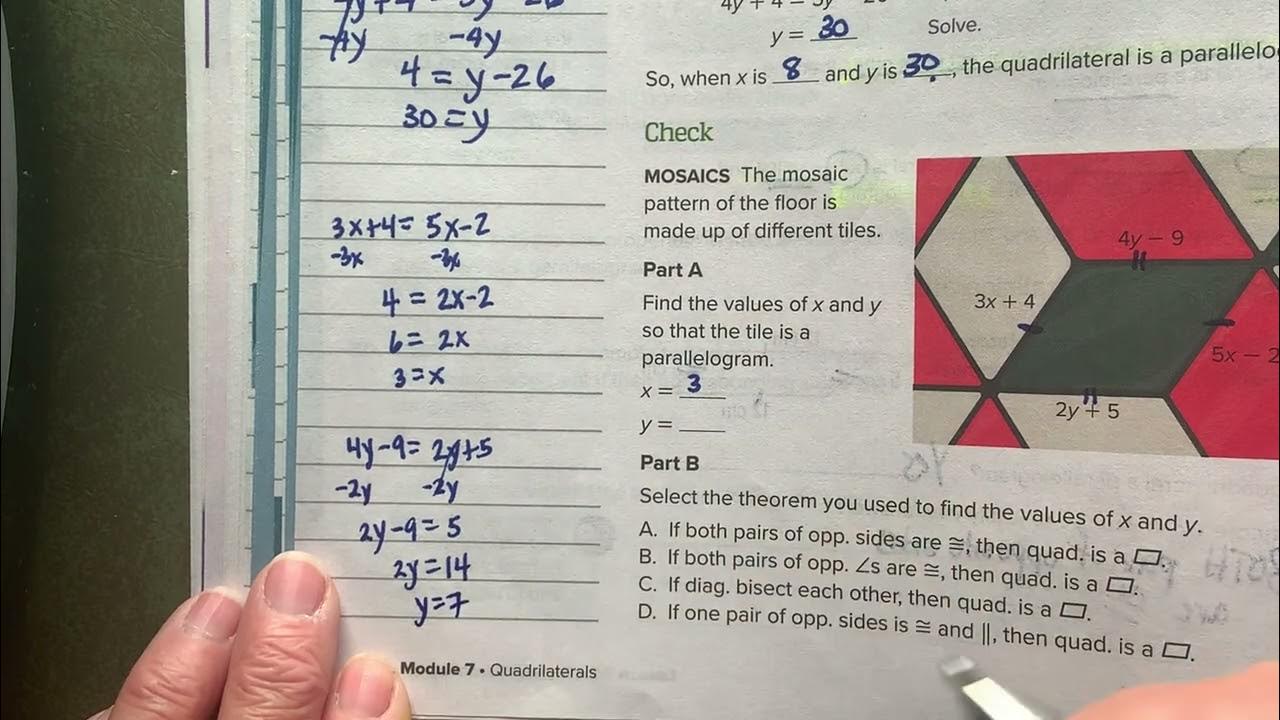 -4y -4y
4 = y-26
30 = y
3x+4 = 5x-2
-3x -3x
4 = 2x-2
6 = 2x
3=x
4y-9= 2y+5
-2y -2y
2y-9=5
2y=14
y=7
Module 7 • Quadrilaterals
y = 30 Solve.
So, when x is 8 and y is 30, the quadrilateral is a
Check
MOSAICS The mosaic
pattern of the floor is
made up of different tiles.
Part A
Find the values of x and y
so that the tile is a
parallelogram.
x = 3
y = ___
4y − 9
3x + 4
5x − 2
2y + 5
Part B
Select the theorem you used to find the values of x and y.
A. If both pairs of opp. sides are ≅, then quad. is a ▱.
B. If both pairs of opp. ∠s are ≅, then quad. is a ▱.
C. If diag. bisect each other, then quad. is a ▱.
D. If one pair of opp. sides is ≅ and ||, then quad. is a ▱.